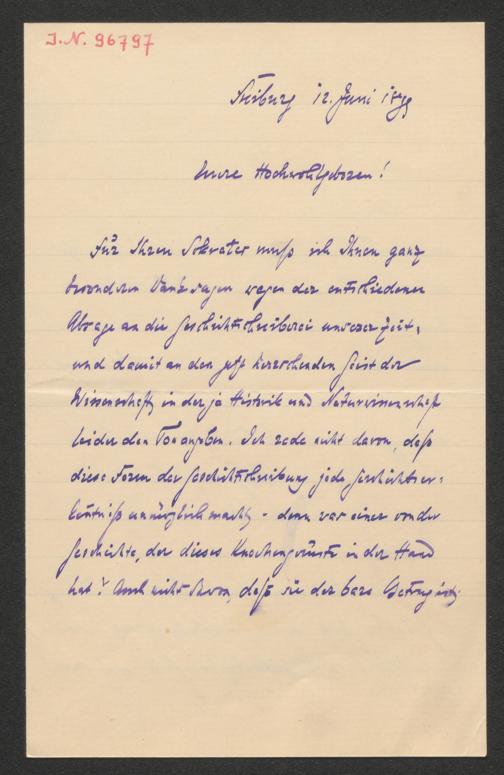 I.N. 96797
Freiburg 12. Juni 1899
Eure Hochwohlgeboren!
Für Ihren Sokrates muß ich Ihnen ganz
besonderen Dank sagen wegen der entschiedenen
Absage an die Geschichtschreiberei unserer Zeit,
und damit an den jetzt herrschenden Geist der
Wissenschaft, in der ja Historik und Naturwissenschaft
leider den Ton angeben. Ich rede nicht davon, daß
diese Form der Geschichtschreibung jede Geschichtser-
kentniß unmöglich macht, - denn was einer von der
Geschichte, der dieses Knochengerüste in der Hand
hat? Auch nicht davon, daß sie der bare